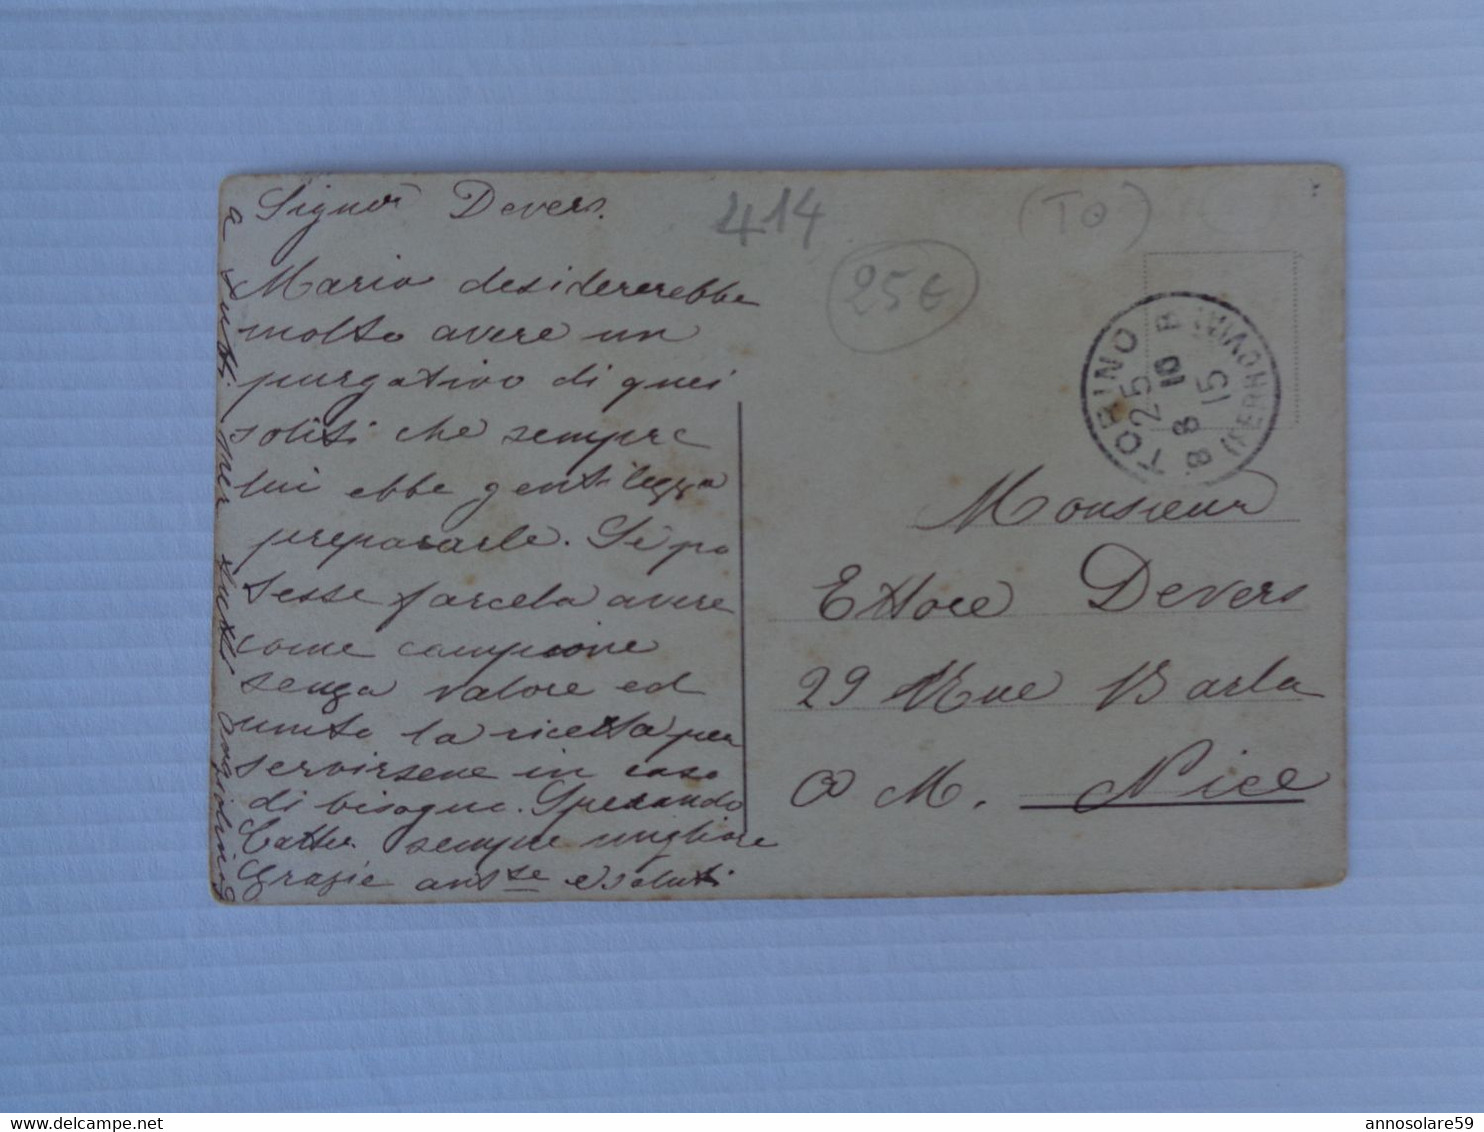 Signor Devers.
Mario desidererebbe
molto avere un
purgativo di quei
soliti che sempre
lui ebbe gentilezza
prepararle. Se po
tesse farcelo avere
come campione
senza valore ed
unito la ricetta per
servirsene in caso
di bisogno. Sperando
sempre migliore
Grazie antte e saluti
a tutti per
414
(TO)
25€
TORINO
25 10 15
8 8
(FERROVIA)
Monsieur
Ettore Devers
29 Rue Barla
A M. Nice
annosolare59